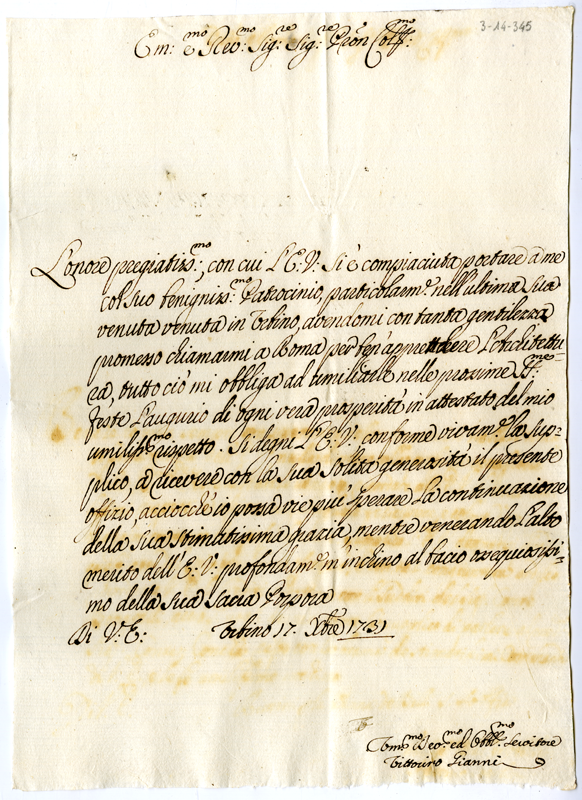 3-14-345
Em: e Rev.mo Sig.re Sig.re Pron Col.mo:
L'onore pregiatiss.mo, con cui L'E: V: si è compiaciuta portare à me
col suo benigniss.mo Patrocinio, particolarm.e nell'ultima sua
venuta venuta in Urbino, avendomi con tanta gentilezza
promesso chiamarmi a Roma per ben'apprendere L'Architettu=
ra, tutto ciò mi obbliga ad umiliarle nelle prossime S.me
feste L'augurio di ogni vera prosperità in attestato del mio
umiliss.mo rispetto. Si degni L'E: V: conforme vivam.e la sup=
plico, di ricevere con la sua solita generosità il presente
offizio, acciocchè io possa vie più sperare La continuazione
della sua stimatissima grazia, mentre venerando L'alto
merito dell'E: V: profondam.e m'inchino al bacio ossequiosissi=
mo della sua sacra Porpora
Di V: E: Urbino 17. Xbre 1731
Um.mo Dev.mo ed Obbl.mo Servitore
Gianni